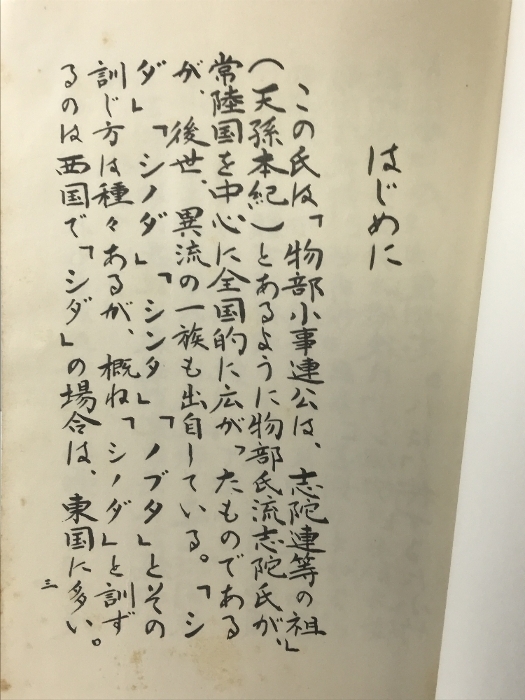 はじめに
この氏は「物部小事連公は、志陀連等の祖」
(天孫本紀)とあるように物部氏流志陀氏が、
常陸国を中心に全国的に広がったものである
が、後世、異流の一族も出自している。「シ
ダ」「シノダ」「シンタ」「ノブタ」とその
訓じ方は種々あるが、概ね「シノダ」と訓ず
るのは西国で「シダ」の場合は、東国に多い。
三